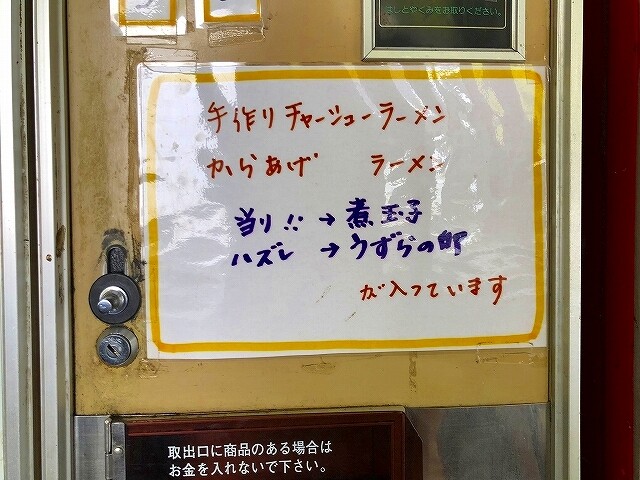 はしとやくみをお取りください。
手作りチャーシューラーメン
からあげ ラーメン
当り!! → 煮玉子
ハズレ → うずらの卵
が入っています
取出口に商品のある場合は
お金を入れないで下さい。